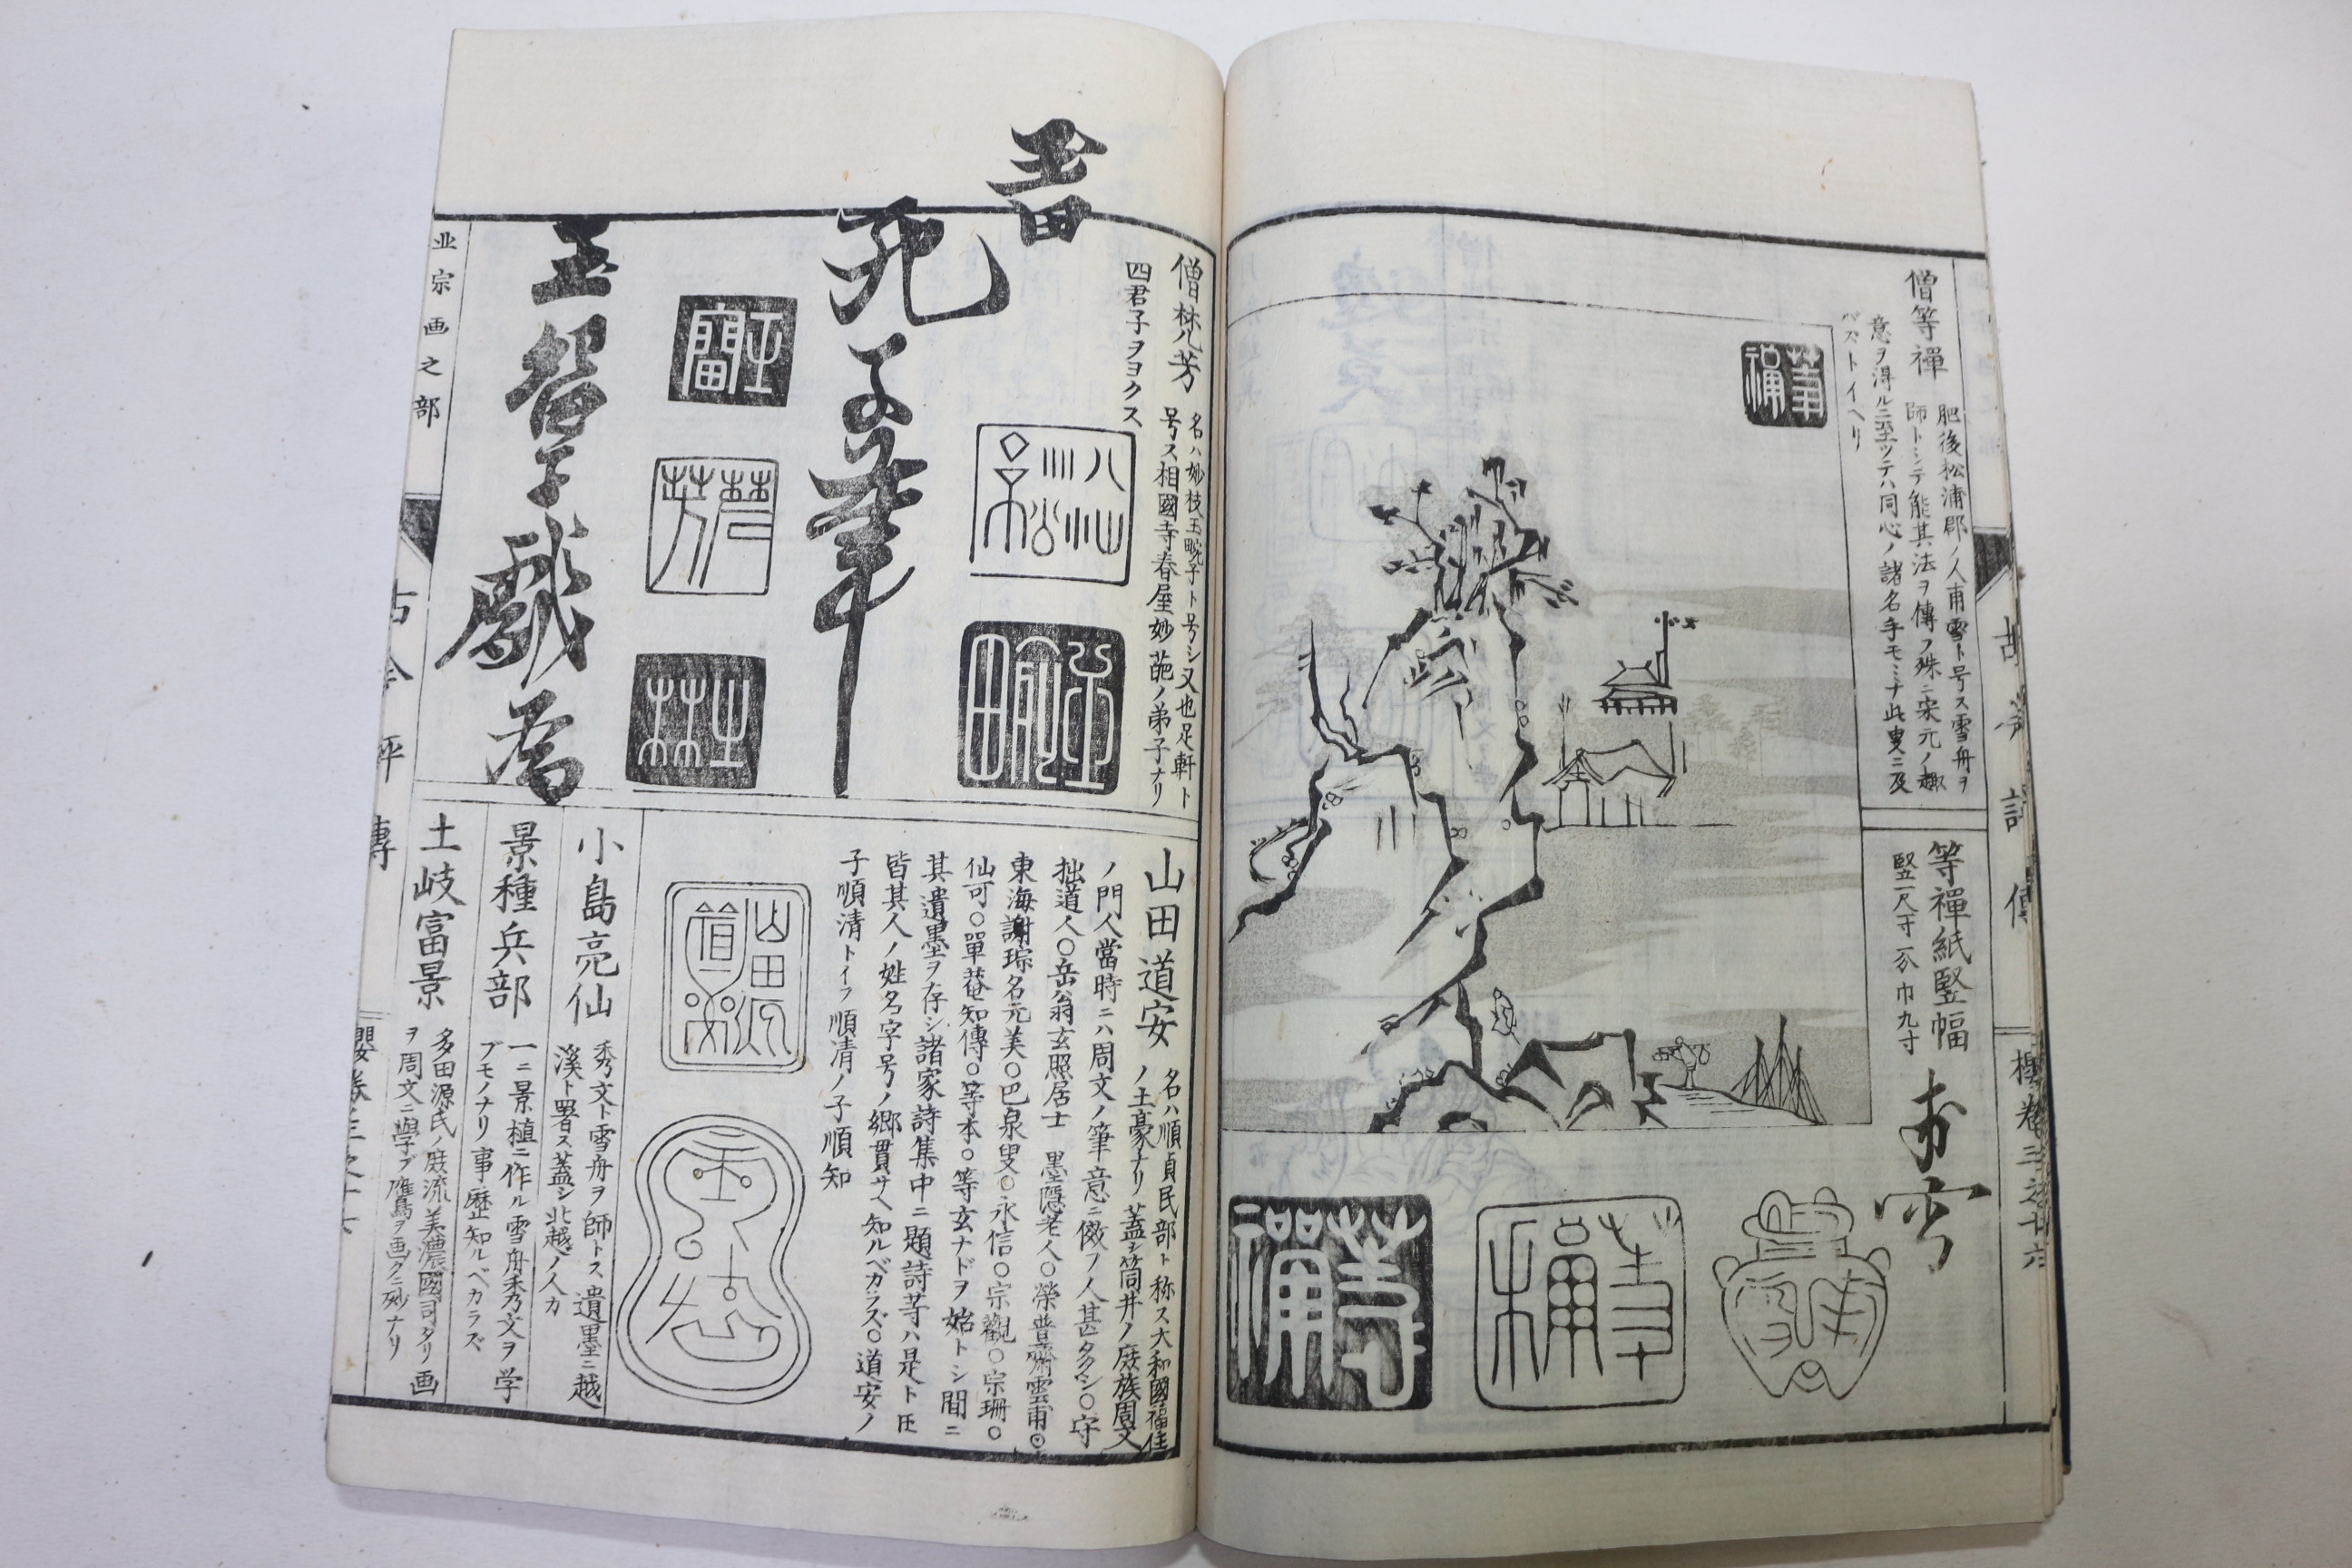 僧等禪
肥後松浦郡ノ人甫雪ト号ス雪舟ヲ
師トシテ能其法ヲ傳フ殊ニ宋元ノ趣
意ヲ得ルニ至ツテハ同心ノ諸名手モミナ此叟ニ及
バズトイヘリ
等禪紙竪幅
竪一尺
巾九寸
等禪
僧梵芳
名ハ妙枝玉畹子ト号シ又也足軒ト
号ス相國寺春屋妙葩ノ弟子ナリ
四君子ヲヨクス
山田道安
名ハ順貞民部ト称ス大和國福住
ノ土豪ナリ蓋シ筒井ノ庶族周文
ノ門人當時ニハ周文ノ筆意ニ倣フノ人甚タ多シ○守
拙道人○岳翁玄照居士 墨隱老人○榮普齋雲甫○
東海謝琮名元美○巴泉叟○永信○宗觀○宗珊○
仙可○單菴知傳○等本○等玄ナドヲ始トシ間ニ
其遺墨ヲ存シ諸家詩集中ニ題詩等ハ是ト
皆其人ノ姓名字号ノ郷貫サヘ知ルベカラズ○道安ノ
子順清トイフ順清ノ子順知
小島亮仙
秀文ト雪舟ヲ師トス遺墨ニ越
溪ト署ス蓋シ北越ノ人カ
景種兵部
一ニ景植ニ作ル雪舟秀文ヲ学
ブモノナリ事歴知ルベカラズ
土岐富景
多田源氏ノ庶流美濃國司タリ画
ヲ周文ニ學ブ鷹ヲ画クニ妙ナリ
宗画之部
古今評傳